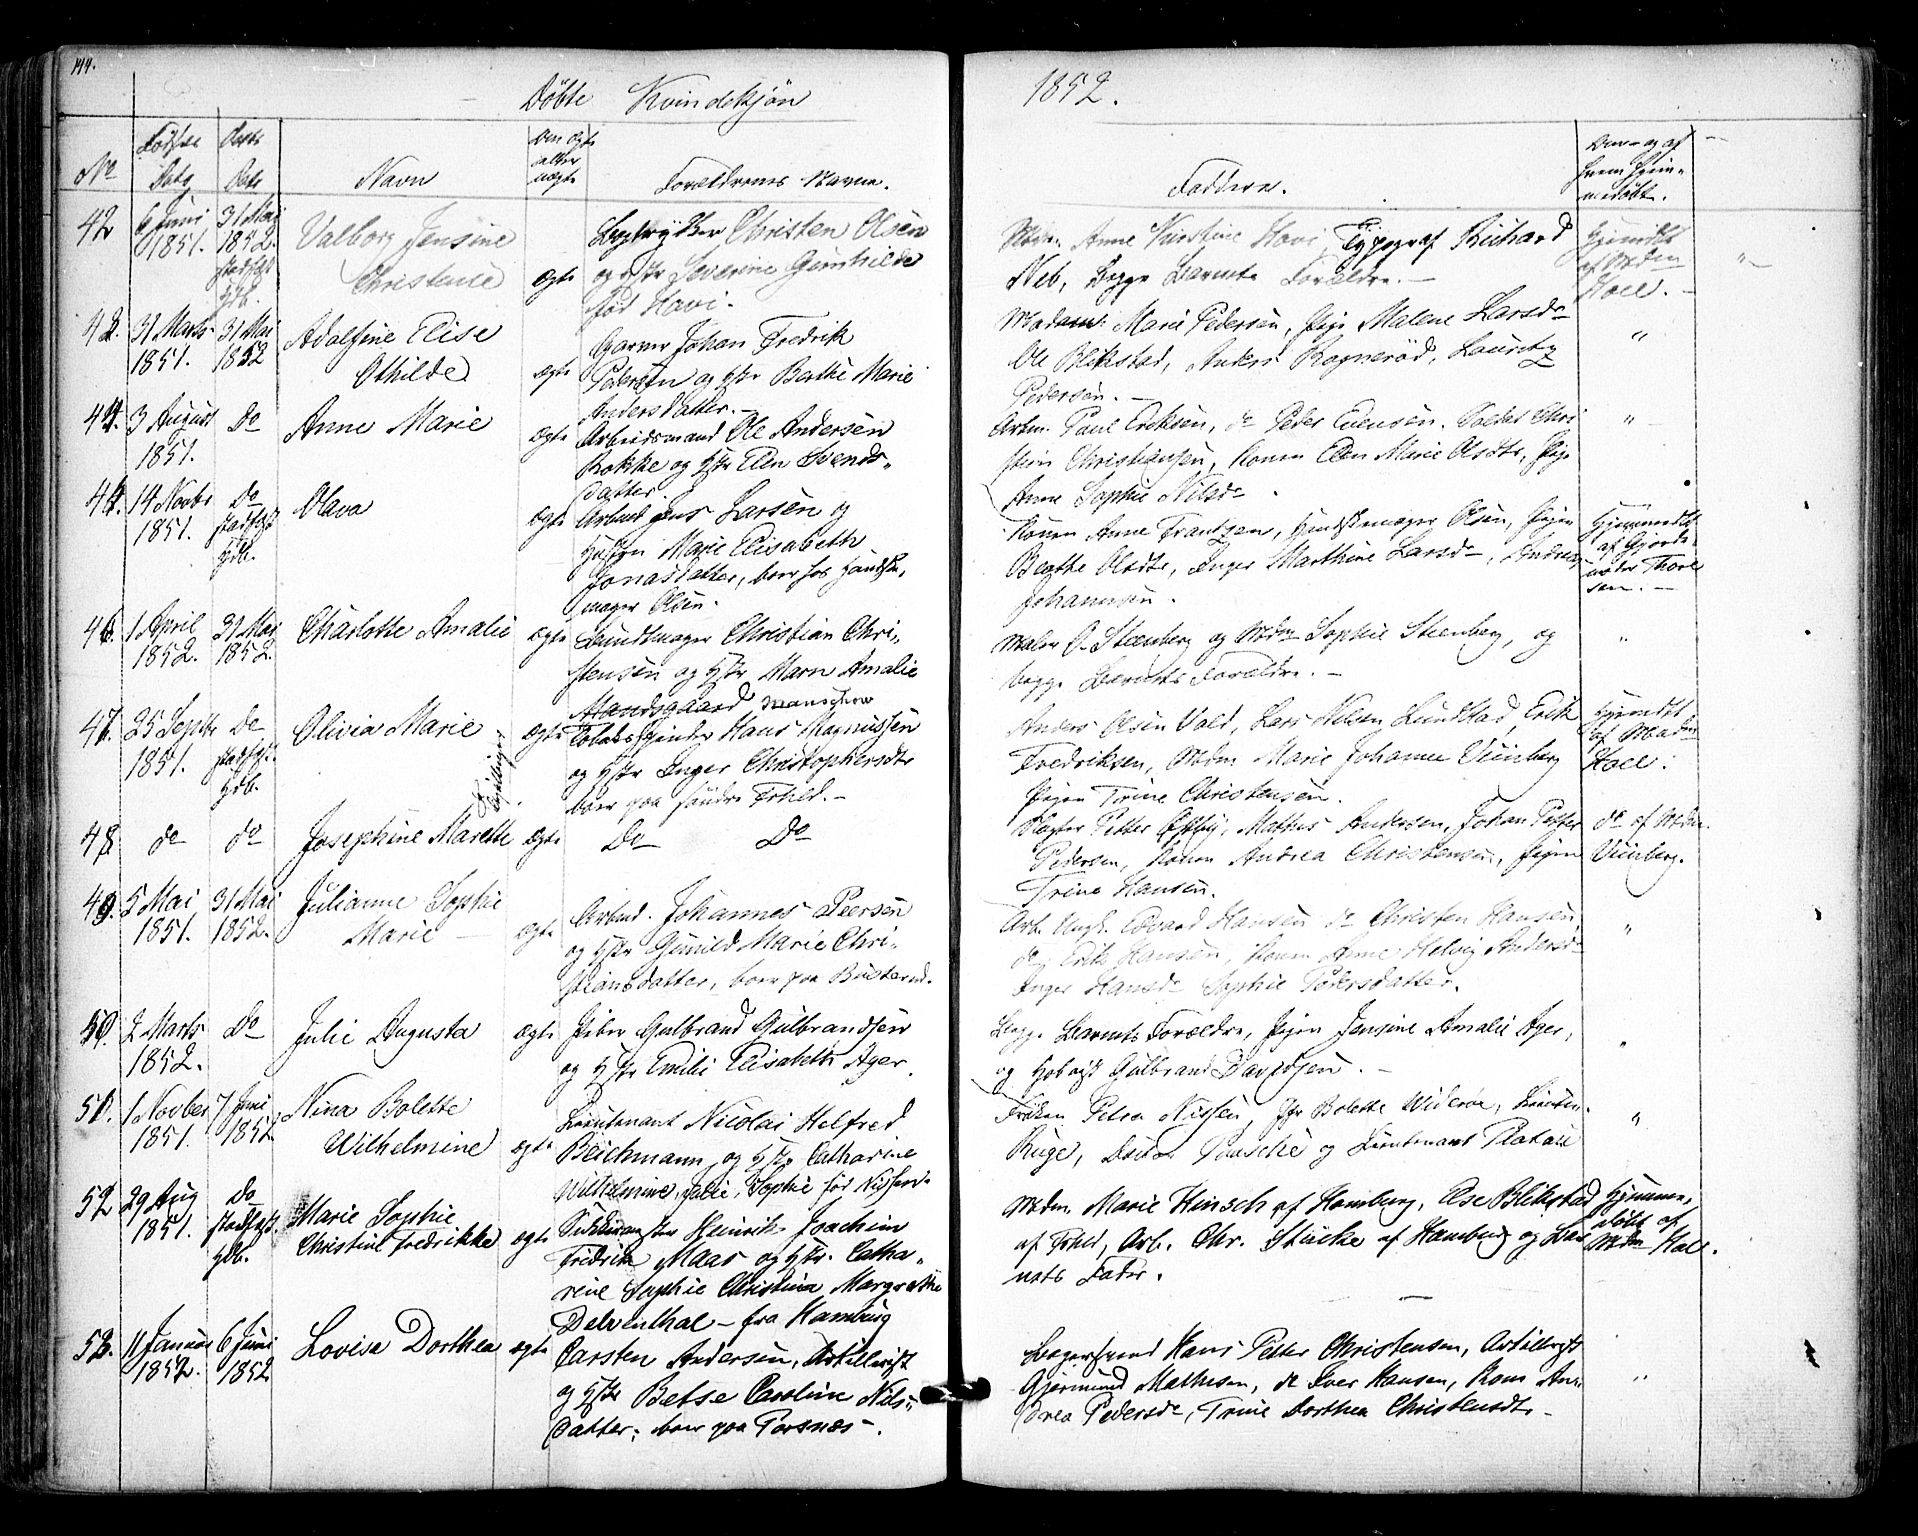 144.
Döbte Kvindekjön 1852.
No Fødsels Dato Daabs Dato Navn Om ægte eller uægte Forældrenes Navne. Faddere. Naar og af hvem hjemmedøbt.
42 6 Juni 1851. 31 Mai 1852. stadfæst. hdb.
Valborg Jensine
Christense
ægte
Bogtrykker Christen Olsen
og Hstr Severine Gunhilde
fød Hovi.
Mdm. Anne Kirstine Hovi Typograf Richard
Neb, Begge Barnets Forældre. —
Hjemdbt
af Mdm
Holl. —
43. 31 Marts 1851. 31 Mai 1852
Adolfine Elise
Othilde
ægte
Garver Johan Fredrik
Pedersen og Hstr Berthe Marie
Andersdatter. —
Madam Marie Pedersen, Pige Malene Larsdr
Ole Blikstad, Anders Rognerød, Lauritz
Pedersen. —
"
44. 3 August 1851. Do
Anne Marie
ægte
Arbeidsmand Ole Andersen
Bakke og Hstr Elen Svends-
datter.
Arbm. Paul Eriksen, do Peder Evensen. Soldat Chri-
stian Christiansen, Konen Elen Marie Olsdtr, Pige
Anne Sophie Nilsdr.
"
14 Novbr 1851. Do stadfæst hdb.
Olava
ægte
Arbmd Jens Larsen og
Hustru Marie Elisabeth
Jonasdatter, boer hos Handsk-
mager Olsen.
Konen Anne Frantzen, Handskemager Olsen, Pigen
Beathe Olsdtr, Inger Marthine Larsdr, Andreas
Johannsen.
Hjemmedbt
af Gjorde-
moder Thore
sen. —
46. 1 April 1852. 31 Mai 1852.
Charlotte Amalie
ægte
Bundtmager Christian Chri-
stensen og Hstr Maren Amalie
Mandsgaard Manschow
Maler O. Steenberg og Mdm Sophie Steenberg, og
begge Barnets Forældre. —
"
47. 25 Septbr 1851. Do stadfæst. hdb.
Olivia Marie
Tvillinger
ægte
Tobaksspinder Hans Magnussen
og Hstr Inger Christophersdtr
boer paa søndre Frhld. —
Anders Olsen Vold, Lars Nilsen Lundstad, Erik
Fredriksen, Mdm Marie Johanne Viinberg
Pigen Trine Christensen.
Hjemdbt
af Madm
Holl.
48. do do
Josephine Marethe
ægte
Do Do
Slagter Petter Østby, Mathis Andersen, Johan Petter
Pedersen, Konen Andrea Christensen, Pigen
Trine Hansen.
do af Mdm.
Viinberg.
49. 5 Mai 1851. 31 Mai 1852.
Julianne Sophie
Marie —
ægte
Arbmd. Johannes Peersen
og Hstr Gunild Marie Chri-
stiansdatter, boer paa
Arb. Ungk. Edvard Hansen do Christen Hansen
do, Erik Hansen, Konen Anne Helvig Andersdr
Inger Hansdr Sophie Pedersdatter.
"
50. 2 Marts 1852. Do
Julie Augusta
ægte
Piber Gulbrand Gulbrandsen
og Hstr Emilie Elisabeth Ager.
Begge Barnets Forældre, Pigen Jensine Amalie Ager,
og Hoboist Gulbrand Davidsen. —
"
51. 1 Novber 1851. 7 Juni 1852.
Nina Bolette
Wilhelmine
ægte
Lieutenant Nicolai Helfred
Beichmann og Hstr Catharine
Wilhelmine, Julie, Sophie fød Nissen.
Frøken Petra Nissen, Fr Bolette Widerøe, Lieuten.
Ruge, Doctor Paasche og Lieutenant Platou
"
52 29 Aug 1851. Do stadfæst hdb.
Marie Sophie
Christine Fredrikke
ægte
Heinrik Joachim
Fredrik Maas og Hstr. Catha-
rine Sophie Christina Margrethe
Delventhal — fra Hamburg
Mdm. Marie Hinsch af Hamburg, Else Blikstad
af Frhld, Arb. Chr. Stücke af Hamburg og Bar-
nets Fader.
Hjemme-
døbt af
Mdm Holl.
53. 11 Januar 1852. 6 Juni 1852
Lovise Dorthea
ægte
Carsten Andersen, Artillerist
og Hstr Betse Caroline Nils-
datter, boer paa Torsnæs —.
Bogersvend Hans Petter Christensen, Artillerist
Gjermund Mathisen, do Iver Hansen, Kone An-
drea Pedersdr, Trine Dorthea Christensdtr —
"